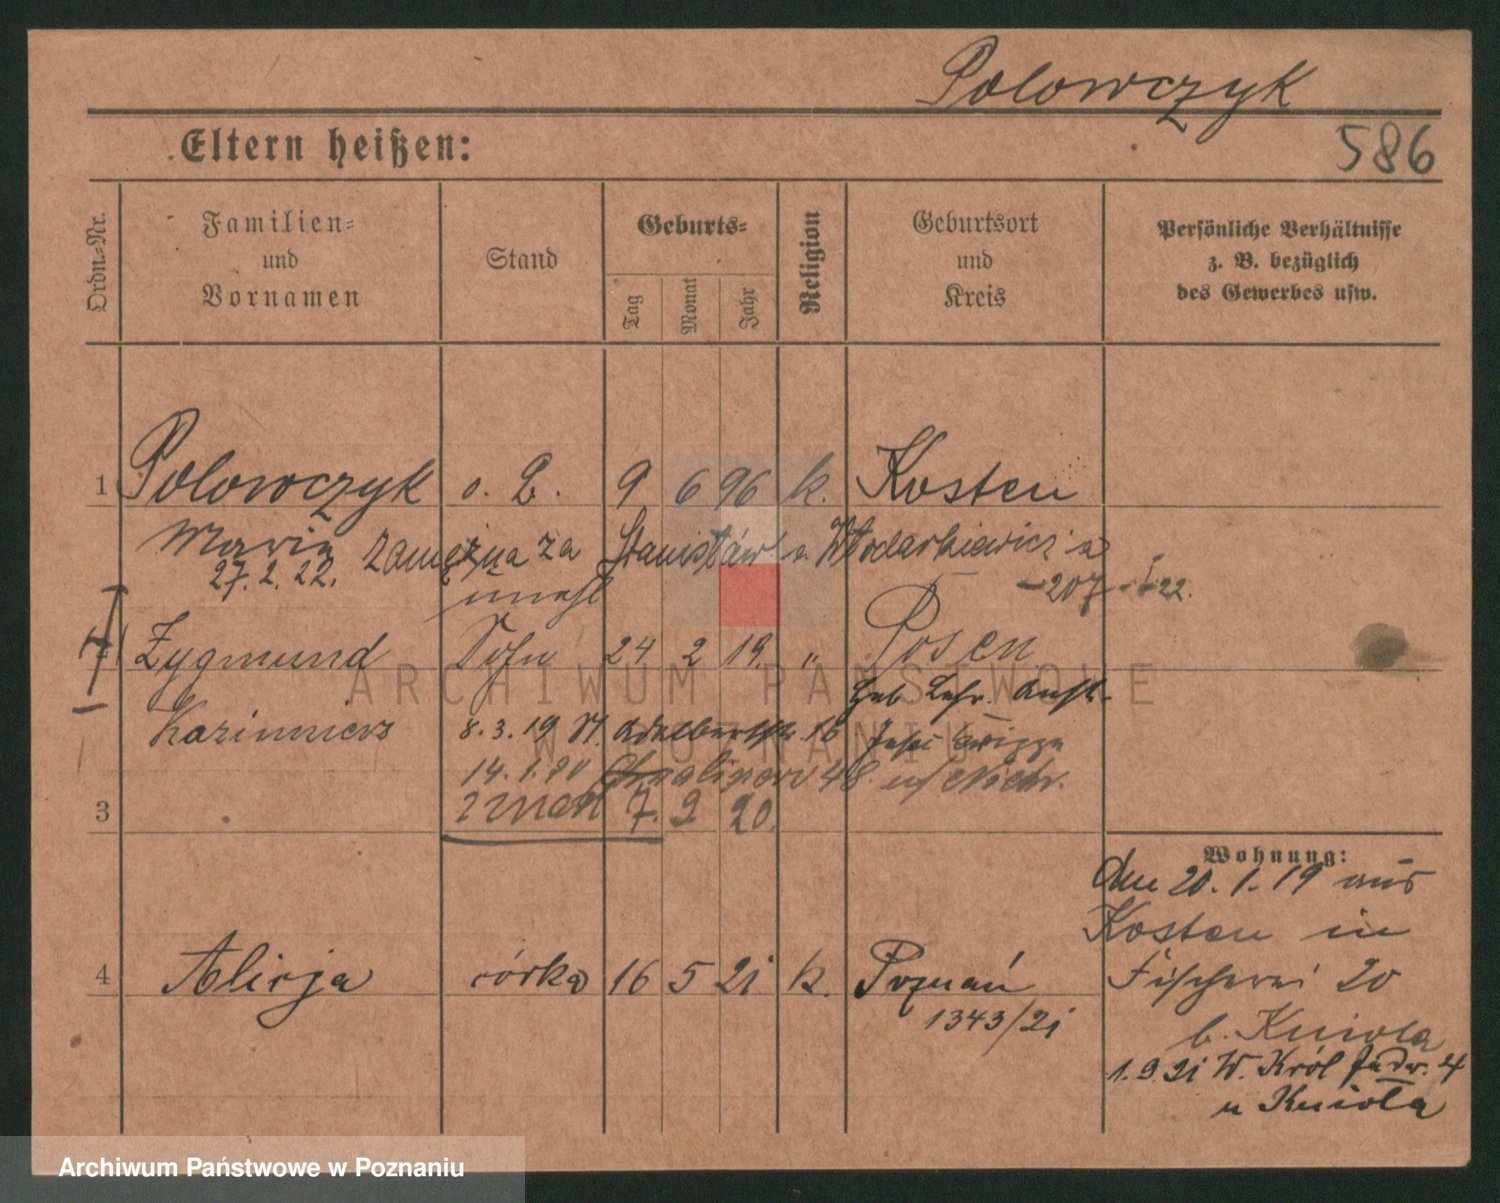 Polowczyk
586
Eltern heißen:
Ordn.-Nr.
Familien-
und
Vornamen
Stand
Geburts-
Tag
Monat
Jahr
Religion
Geburtsort
und
Kreis
Persönliche Verhältnisse
z. B. bezüglich
des Gewerbes usw.
1 Polowczyk o. B. 9 6 96 k. Kosten
Maria zamężna za Stanisław Włodarkiewicz
27.2.22.
Zygmund Sohn 24 2 19. " Posen
Kazimierz 8.3.19 Adalbertstr. 16
14.1.20 48
3 7. 9 20.
Wohnung:
Am 20.1.19 aus
Kosten in
Fischerei 20
b. Kniola
1.9.21 W. Król Jadw. 4
u Knioła
4 Alicja córka 16 5 21 k. Poznań
1343/21
ARCHIWUM PAŃSTWOWE
W POZNANIU
Archiwum Państwowe w Poznaniu